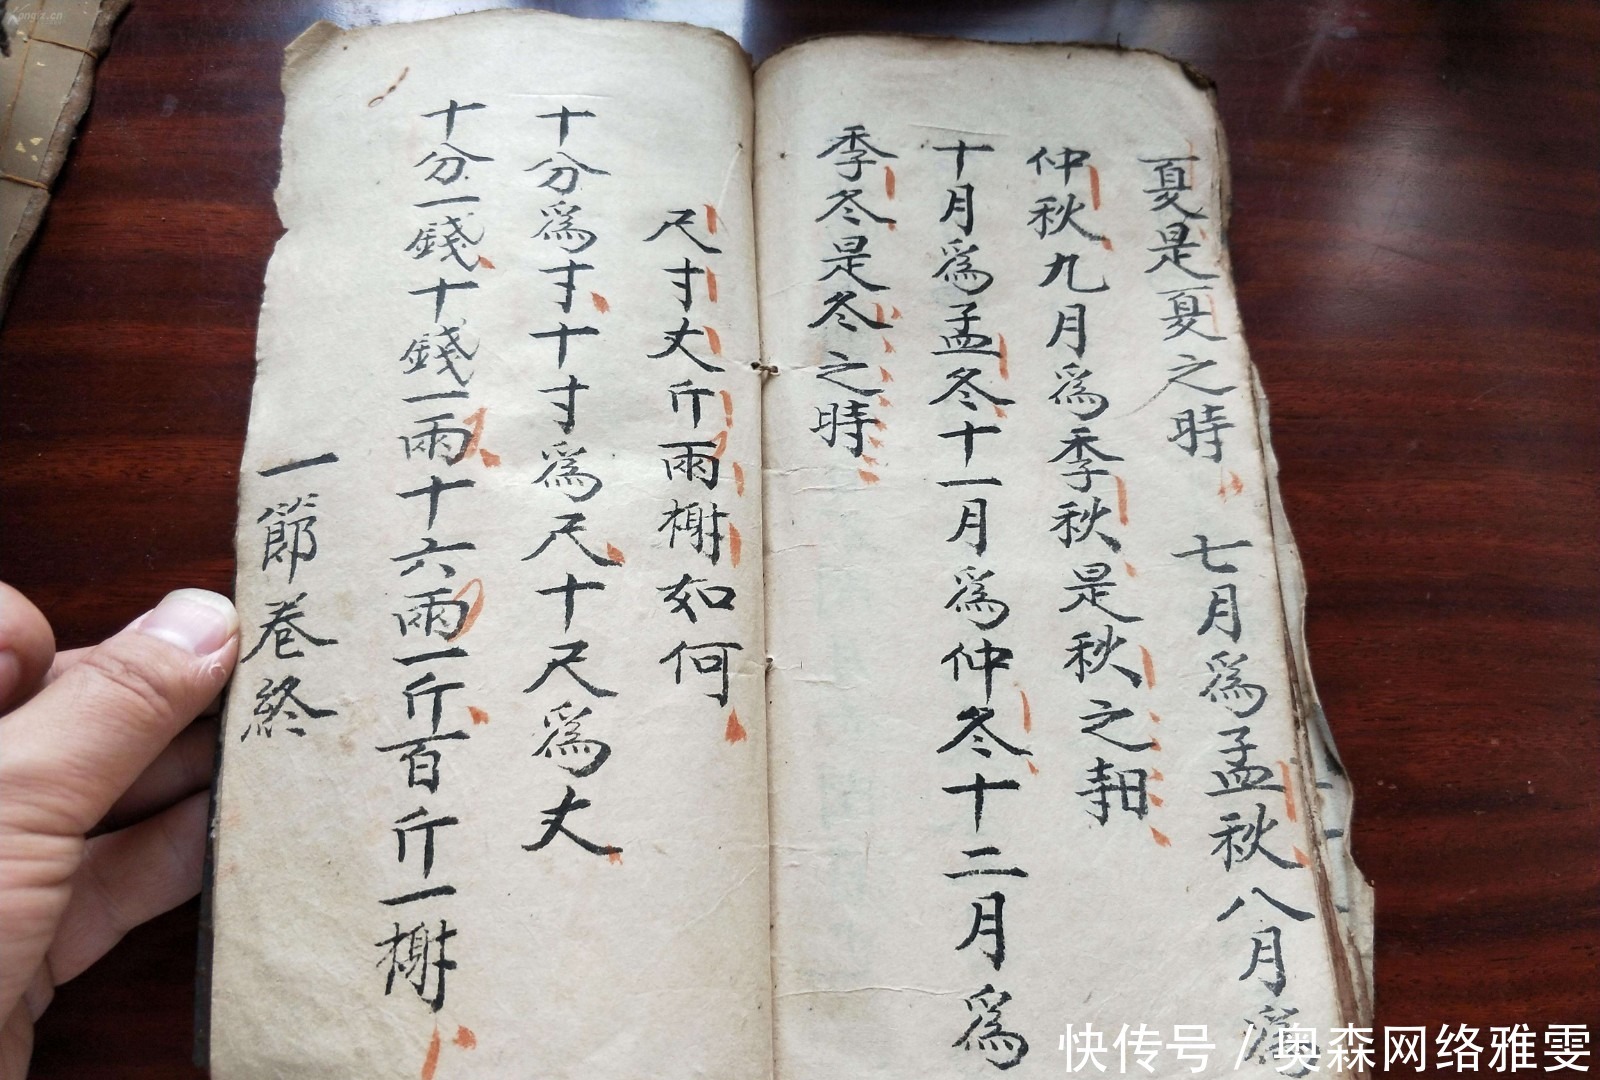 夏是夏之時 七月爲孟秋八月爲
仲秋九月爲季秋是秋之時
十月爲孟冬十一月爲仲冬十二月爲
季冬是冬之時
尺寸丈斤兩榭如何
十分爲寸十寸爲尺十尺爲丈
十分一錢十錢一兩十六兩一斤百斤一榭
一節卷終
快传号 / 奥森网络雅雯